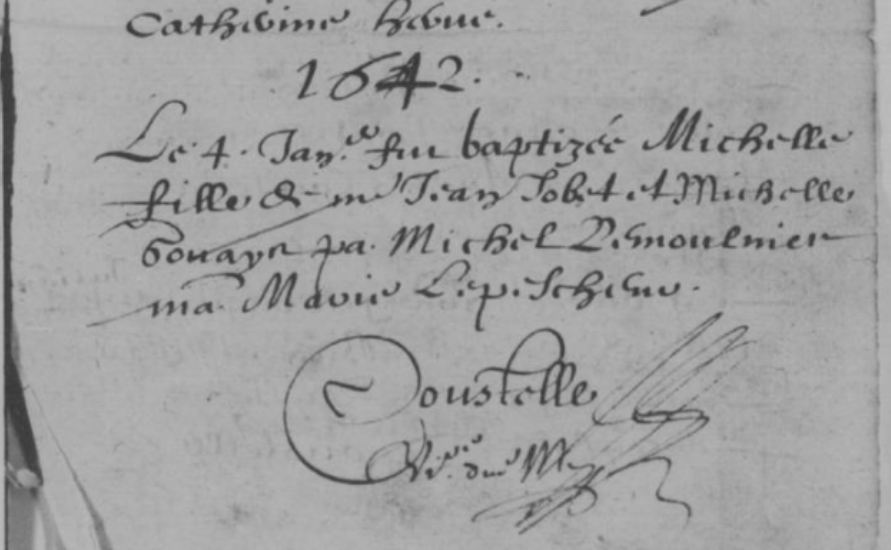 Catherine herue.
1642.
Le 4. Jan.er fut baptizée Michelle
fille de me Jean Jobet et Michelle
pa. Michel Demoulnier
ma. Marie Lepescheur.
Doustelle